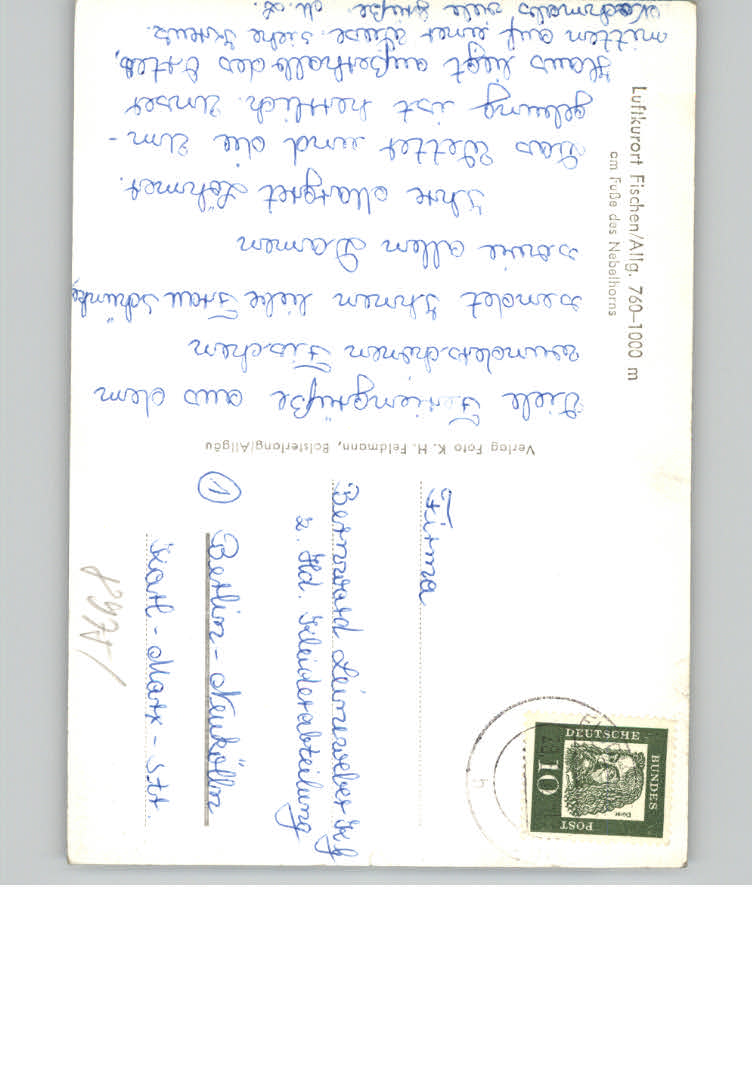 Luftkurort Fischen/Allg. 760–1000 m
am Fuße des Nebelhorns
Viele Feriengrüße aus dem
wunderschönen Fischen
sendet Ihnen liebe Frau
sowie allen Damen
Ihre Margret
Das Wetter und die Um-
gebung ist herrlich. Unser
Haus liegt außerhalb des Ortes,
mitten auf einer Wiese. Siehe Kreuz.
Nochmals viele Grüße. M. L.
Verlag Foto K. H. Feldmann, Bolsterlang/Allgäu
Firma
Leineweber
z. Hd. Kleiderabteilung
① Berlin-Neukölln
Karl-Marx-Str.
DEUTSCHE
BUNDES
POST
10
Dürer